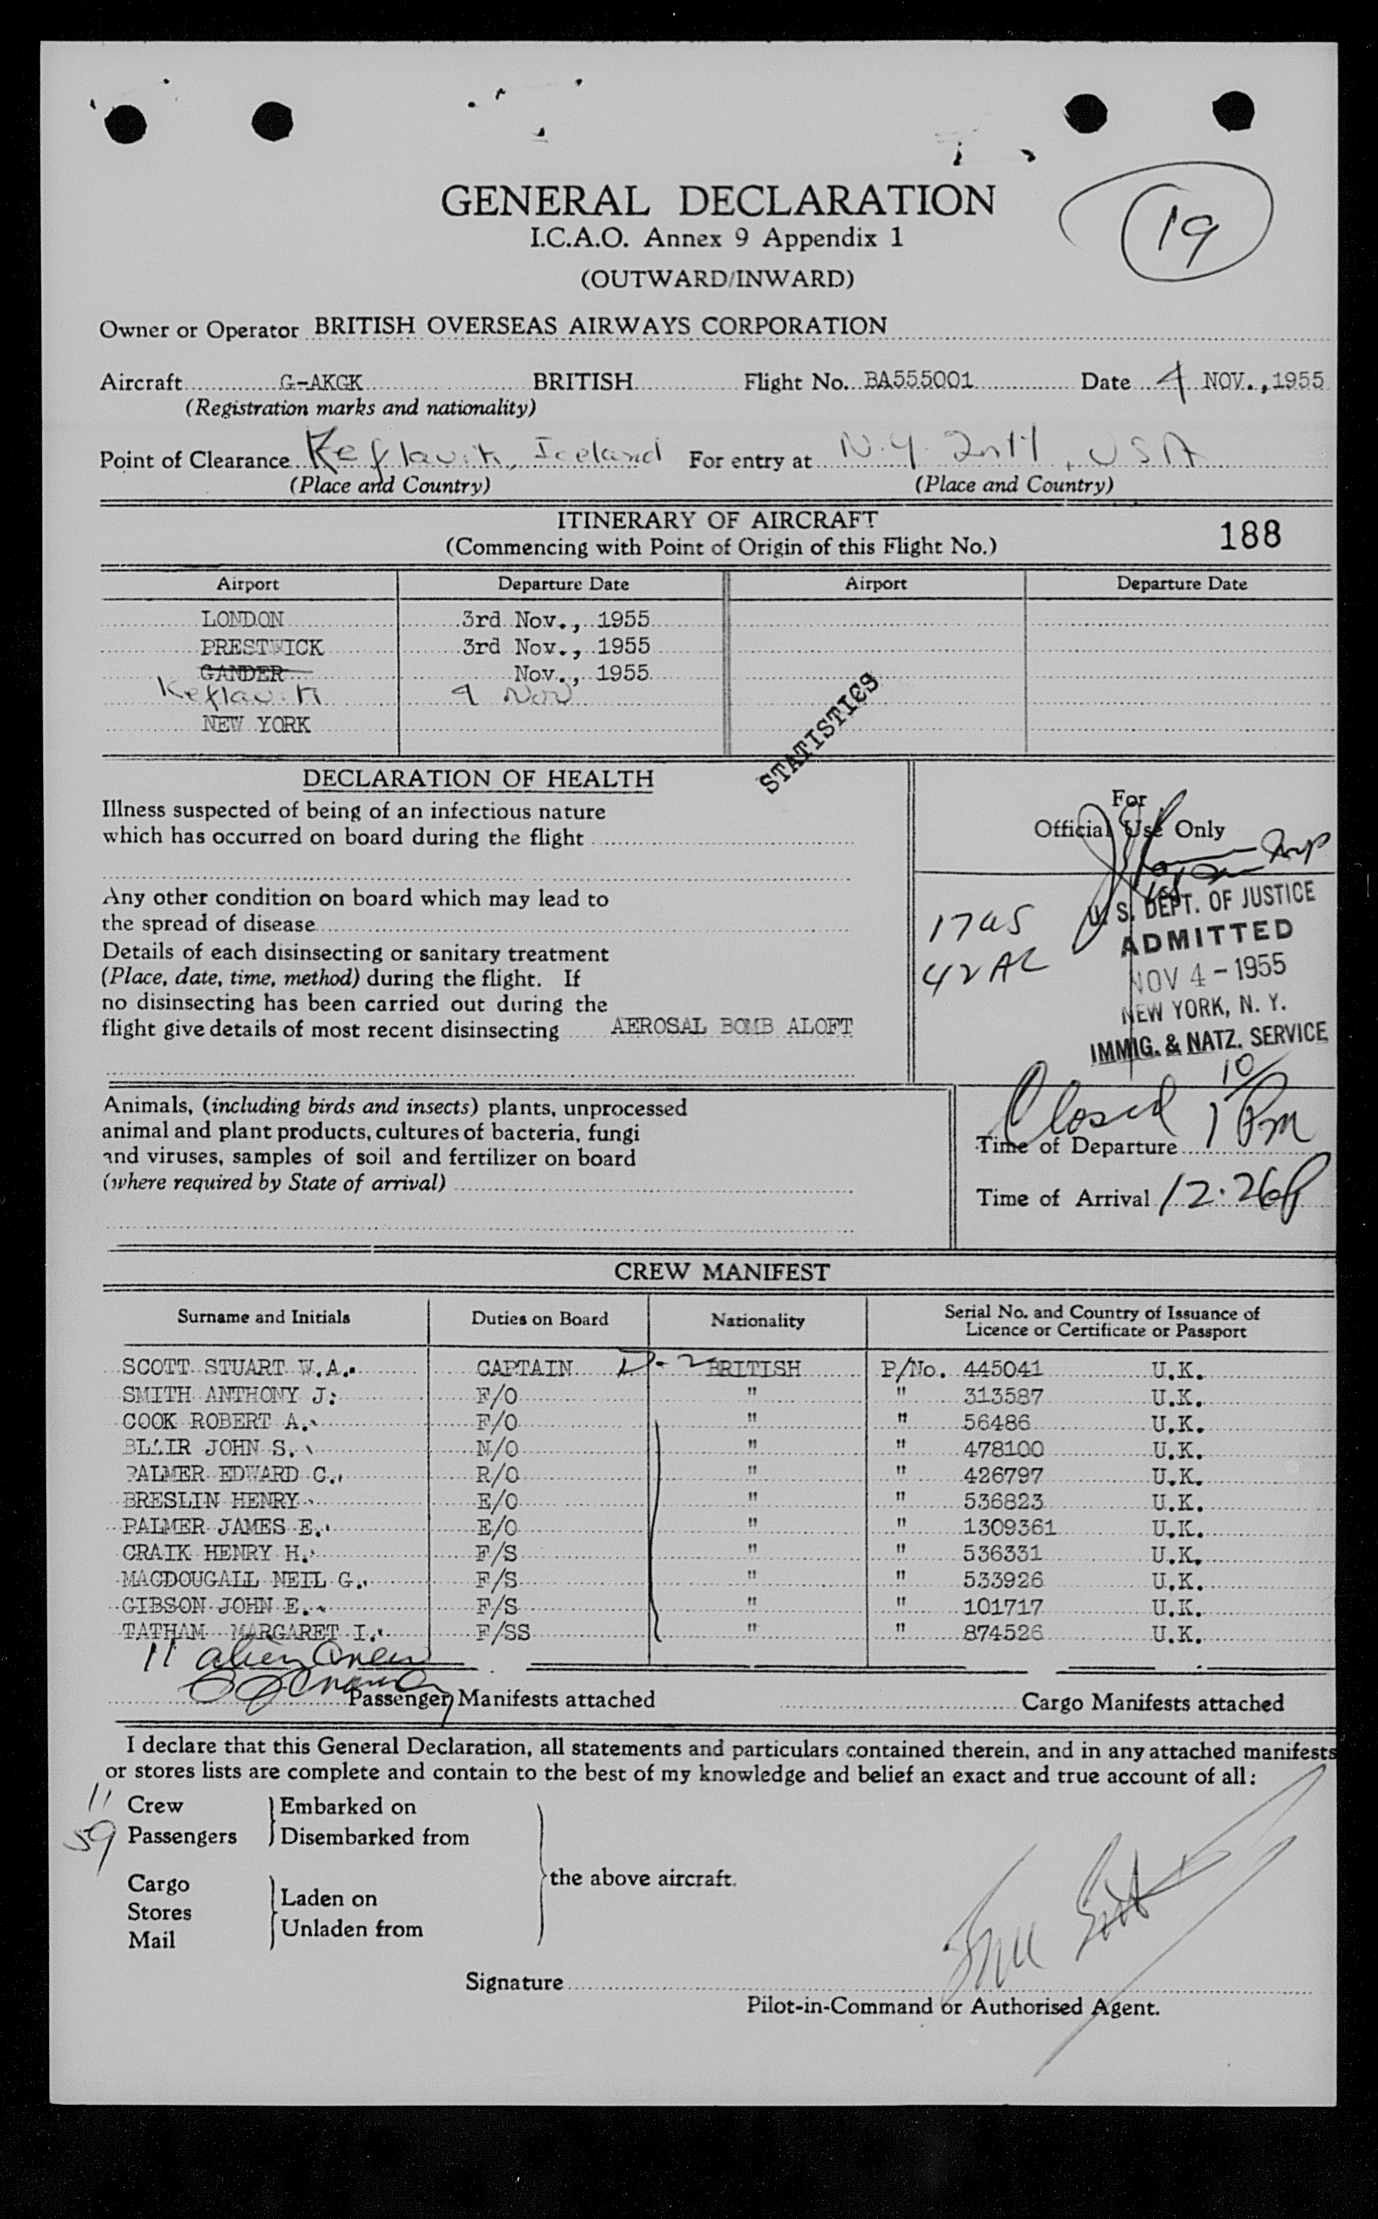 19
GENERAL DECLARATION
I.C.A.O. Annex 9 Appendix 1
(OUTWARD/INWARD)
Owner or Operator BRITISH OVERSEAS AIRWAYS CORPORATION
Aircraft G-AKGK BRITISH Flight No. BA555001 Date 4 NOV., 1955
(Registration marks and nationality)
Point of Clearance Keflavik, Iceland For entry at N.Y. Intl, USA
(Place and Country) (Place and Country)
ITINERARY OF AIRCRAFT
(Commencing with Point of Origin of this Flight No.) 188
Airport Departure Date Airport Departure Date
LONDON 3rd Nov., 1955
PRESTWICK 3rd Nov., 1955
GANDER Nov., 1955
Keflavik 4 Nov
NEW YORK
STATISTICS
DECLARATION OF HEALTH
Illness suspected of being of an infectious nature
which has occurred on board during the flight
Any other condition on board which may lead to
the spread of disease
Details of each disinsecting or sanitary treatment
(Place, date, time, method) during the flight. If
no disinsecting has been carried out during the
flight give details of most recent disinsecting AEROSAL BOMB ALOFT
For
Official Use Only
Insp
17US
42AL
U. S. DEPT. OF JUSTICE
ADMITTED
NOV 4 - 1955
NEW YORK, N. Y.
IMMIG. & NATZ. SERVICE
Animals, (including birds and insects) plants, unprocessed
animal and plant products, cultures of bacteria, fungi
and viruses, samples of soil and fertilizer on board
(where required by State of arrival)
Closed 1 10 Pm
Time of Departure
Time of Arrival 12.26p
CREW MANIFEST
Surname and Initials Duties on Board Nationality Serial No. and Country of Issuance of
Licence or Certificate or Passport
SCOTT STUART W.A. CAPTAIN D-2 BRITISH P/No. 445041 U.K.
SMITH ANTHONY J. F/O " " 313587 U.K.
COOK ROBERT A. F/O " " 56486 U.K.
BLAIR JOHN S. N/O " " 478100 U.K.
PALMER EDWARD C. R/O " " 426797 U.K.
BRESLIN HENRY E/O " " 536823 U.K.
PALMER JAMES E. E/O " " 1309361 U.K.
CRAIK HENRY H. F/S " " 536331 U.K.
MACDOUGALL NEIL G. F/S " " 533926 U.K.
GIBSON JOHN E. F/S " " 101717 U.K.
TATHAM MARGARET I. F/SS " " 874526 U.K.
11 alien Crew
Passenger Manifests attached Cargo Manifests attached
I declare that this General Declaration, all statements and particulars contained therein, and in any attached manifests
or stores lists are complete and contain to the best of my knowledge and belief an exact and true account of all:
11 Crew Embarked on
59 Passengers Disembarked from
the above aircraft.
Cargo
Laden on
Stores
Unladen from
Mail
Signature
Pilot-in-Command or Authorised Agent.